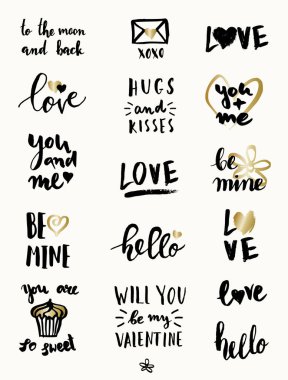 to the moon
and back
XOXO
LOVE
love
HUGS
and
KISSES
you
+
me
you
and
me
LOVE
be
mine
BE
MINE
hello
LO
VE
you are
so sweet
WILL YOU
be my
VALENTINE
love
hello